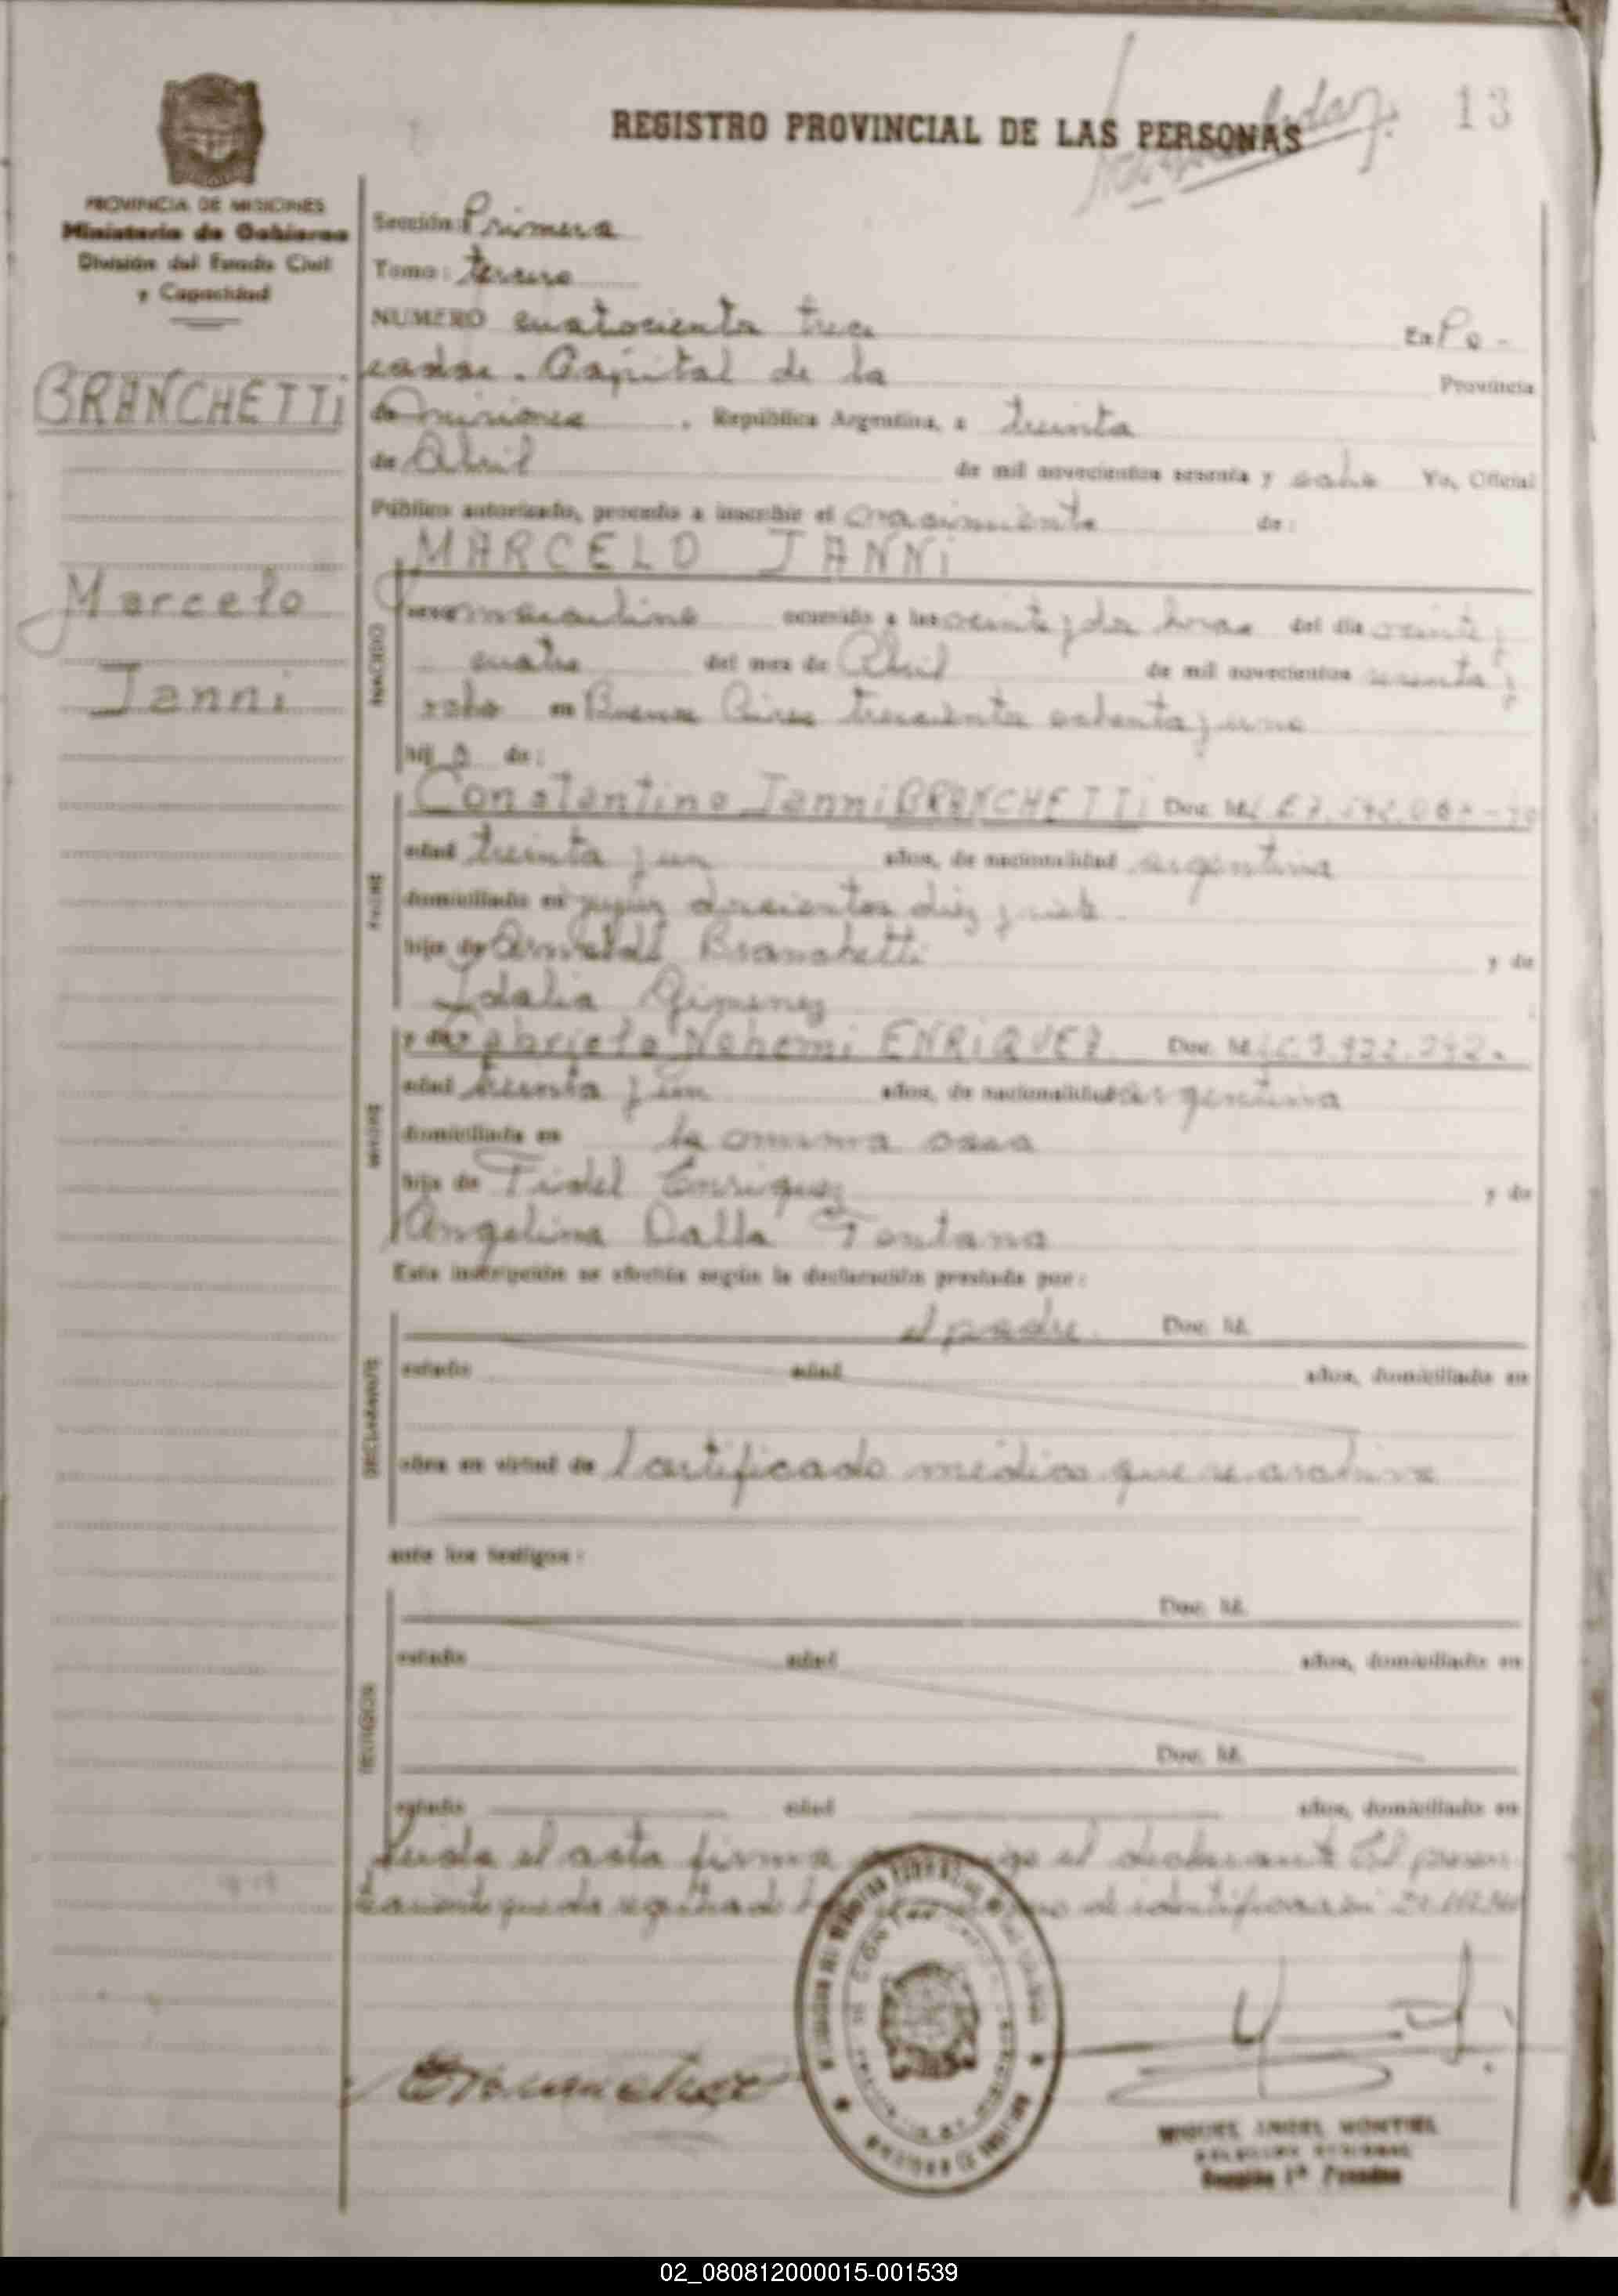 13
REGISTRO PROVINCIAL DE LAS PERSONAS
PROVINCIA DE MISIONES
Ministerio de Gobierno
División del Estado Civil
y Capacidad
BRANCHETTI
Marcelo
Ianni
Sección: Primera
Tomo: tercero
NUMERO cuatrocientos trece En Po-
sadas. Capital de la Provincia
de Misiones, República Argentina, a treinta
de Abril de mil novecientos sesenta y ocho Yo, Oficial
Público autorizado, procedo a inscribir el nacimiento de:
MARCELO IANNI
INACIDO
sexo masculino ocurrido a las veinte y dos horas del día veinte y
cuatro del mes de Abril de mil novecientos sesenta y
ocho en Buenos Aires trescientos ochenta y uno
hij o de:
PADRE
Constantino Ianni BRANCHETTI Doc. Id.
edad treinta y un años, de nacionalidad argentina
domiciliado en Jujuy doscientos diez y siete
hijo de Branchetti y de
Idalia Gimenez
MADRE
y de Gabriela Nohemi ENRIQUEZ Doc. Id.
edad treinta y un años, de nacionalidad argentina
domiciliada en la misma casa
hija de Fidel Enriquez y de
Angelina Dalla Fontana
Esta inscripción se efectúa según la declaración prestada por:
DECLARANTE
el padre. Doc. Id.
estado edad años, domiciliado en
obra en virtud de Certificado médico que se archiva
ante los testigos:
TESTIGOS
Doc. Id.
estado edad años, domiciliado en
Doc. Id.
estado edad años, domiciliado en
Leida el acta firma el declarante El presen
queda de identificación
MIGUEL ANGEL MONTIEL
DELEGADO REGIONAL
Región 1ª Posadas
02_080812000015-001539